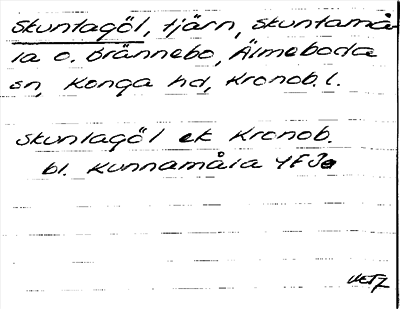 Skuntagöl, tjärn, Skuntamå-
la o. Brännebo, Älmeboda
sn, Konga hd, Kronob. l.
Skuntagöl ek Kronob.
bl. Kunnamåla 4F3e